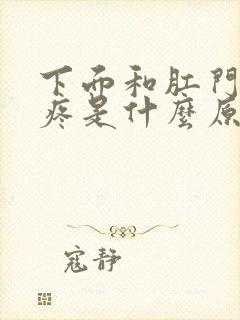 下面和肛門
疼是什麼原
寇靜